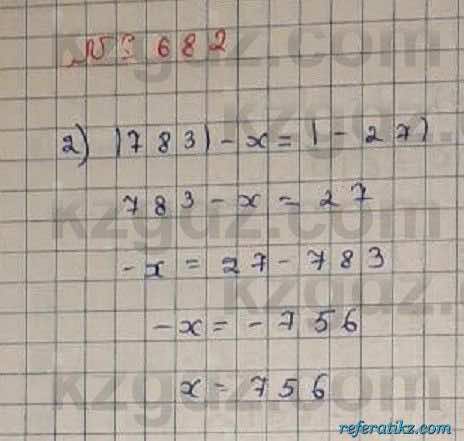 № 682
2) |783| - x = |-27|
783 - x = 27
-x = 27 - 783
-x = -756
x = 756
kzgdz.com
referatikz.com